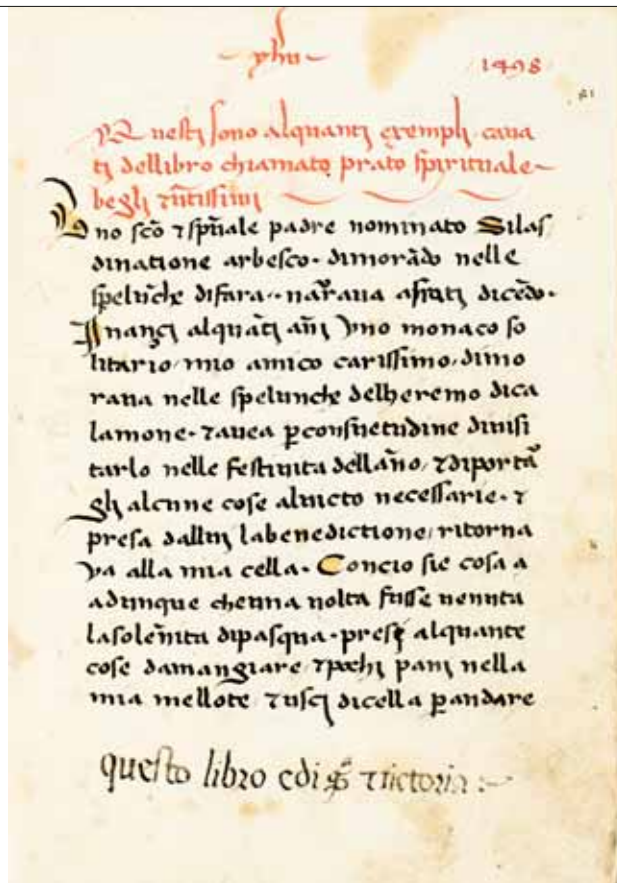 yhu
1498
Questi sono alquanti exempli cava
ti dellibro chiamato prato spirituale
begli
Uno sc̃o ⁊ spũale padre nominato Silas
dinatione arbesco · dimorãdo nelle
spelũche difara · narr̃ava afrati dicẽdo ·
Inanzi alquãti ãni uno monaco so
litario / mio amico carissimo / dimo
rava nelle spelunche delheremo dica
lamone · ⁊avea ꝑconsuetudine divisi
tarlo nelle festivita dellãno / ⁊diportã
gli alcune cose alvicto necessarie · ⁊
presa dallui labenedictione / ritorna
va alla mia cella · Concio sie cosa a
adunque cheuna volta fusse venuta
lasolẽnita dipasqua · prese alquante
cose damangiare ⁊pochi pani nella
mia mellote ⁊usci dicella ꝑandare
questo libro edi ⁊victoria :~